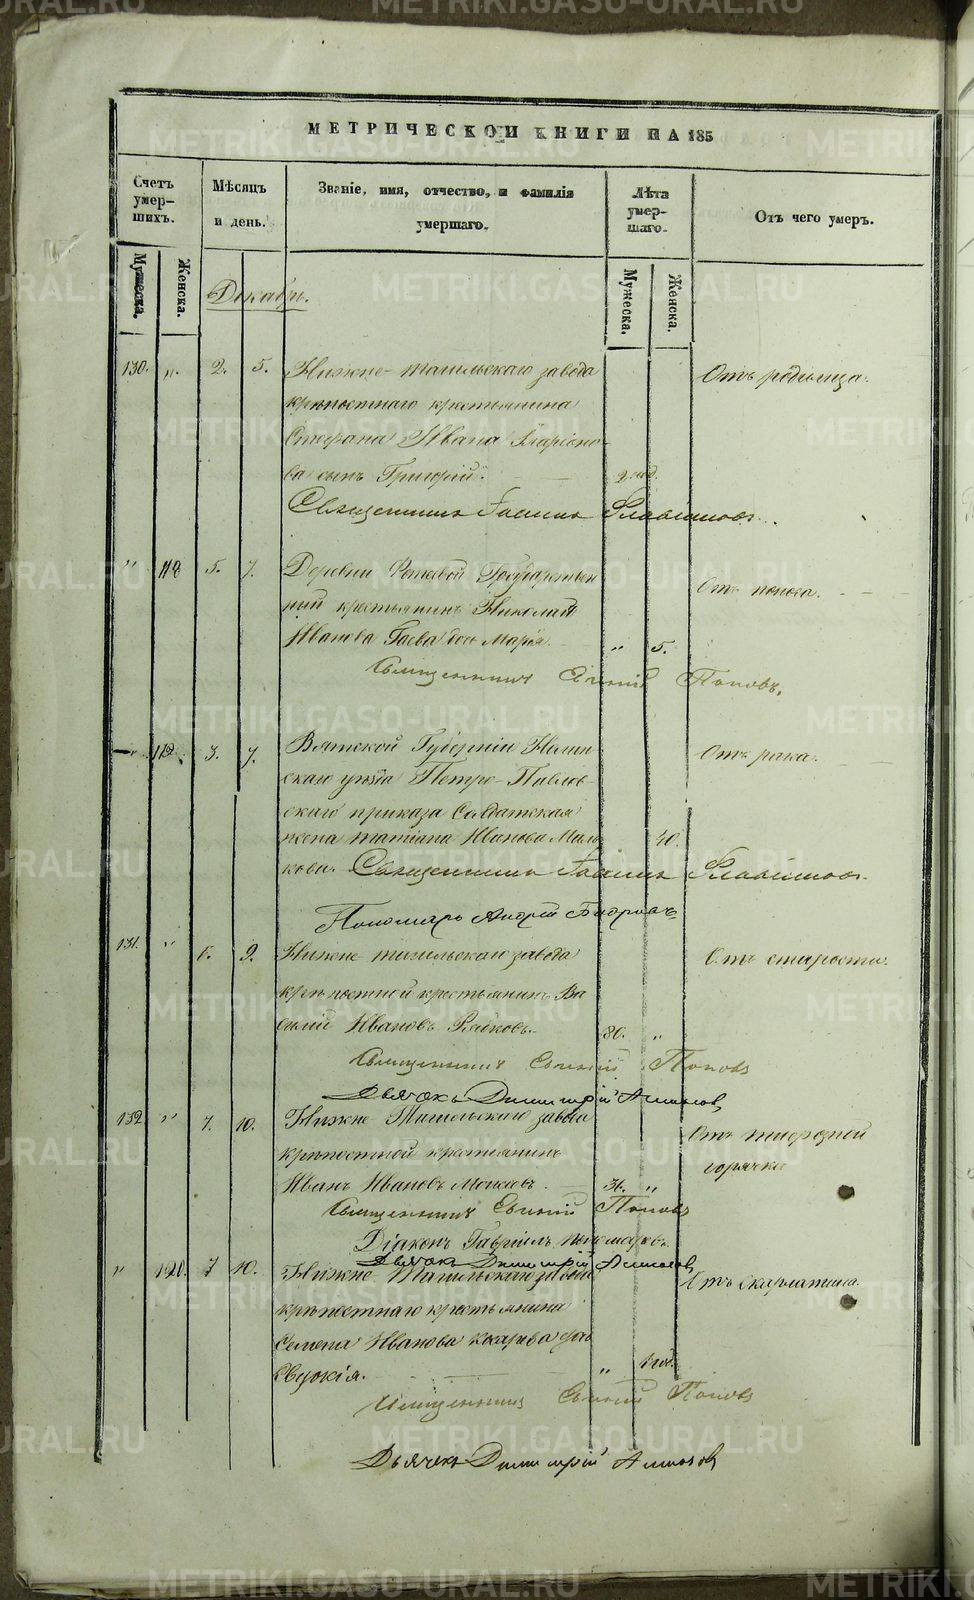 МЕТРИЧЕСКОЙ КНИГИ НА 185
Счетъ умер-шихъ.
Мѣсяцъ и день.
Званіе, имя, отчество, и фамилія умершаго.
Лѣта умер-шаго.
Отъ чего умеръ.
Мужеска.
Женска.
Мужеска.
Женска.
Декабрь.
130. „ 2. 5. Нижне-тагильскаго завода Отъ родимца.
крѣпостнаго крестьянина
Стефана Иванова
сынъ Григорій. 2. нед.
Священникъ Іоаннъ Флавіановъ.
„ 118 5. 7. Деревни Государствен
ный крестьянинъ Николай Отъ поноса.
Иванова Гаева дочь Марія. „ 5.
Священникъ Евгеній Поповъ.
„ 119 3. 7. Вятской Губерніи Нолин Отъ рака.
скаго уѣзда Петро-Павлов
скаго приказа Солдатская
жена Татіана Иванова 40.
Священникъ Іоаннъ Флавіановъ.
Пономарь Андрей
131. „ 6. 9. Нижне-тагильскаго завода Отъ старости.
крѣпостной крестьянинъ Ва
силий Ивановъ 80. „
Священникъ Евгеній Поповъ
Дьячекъ Димитрій
132 „ 7. 10. Нижне Тагильскаго завода Отъ нервозной
крѣпостной крестьянинъ горячки
Иванъ Ивановъ 36. „
Священникъ Евгеній Поповъ
Діаконъ Гавріилъ Пономаревъ.
Дьячекъ Димитрій
„ 120. 7 10. Нижне-Тагильскаго завода Отъ скарлатины.
крѣпостнаго крестьянина
Семена Иванова дочь
Евдокія. „ 1 год.
Священникъ Евгеній Поповъ
Дьячекъ Димитрій
METRIKI.GASO-URAL.RU